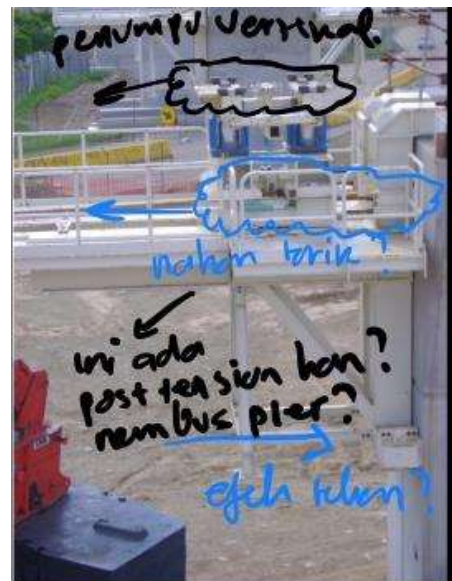 penumpu vertikal.
nahan tarik?
ini ada
post tension kan?
nembus pier?
efek tekan?